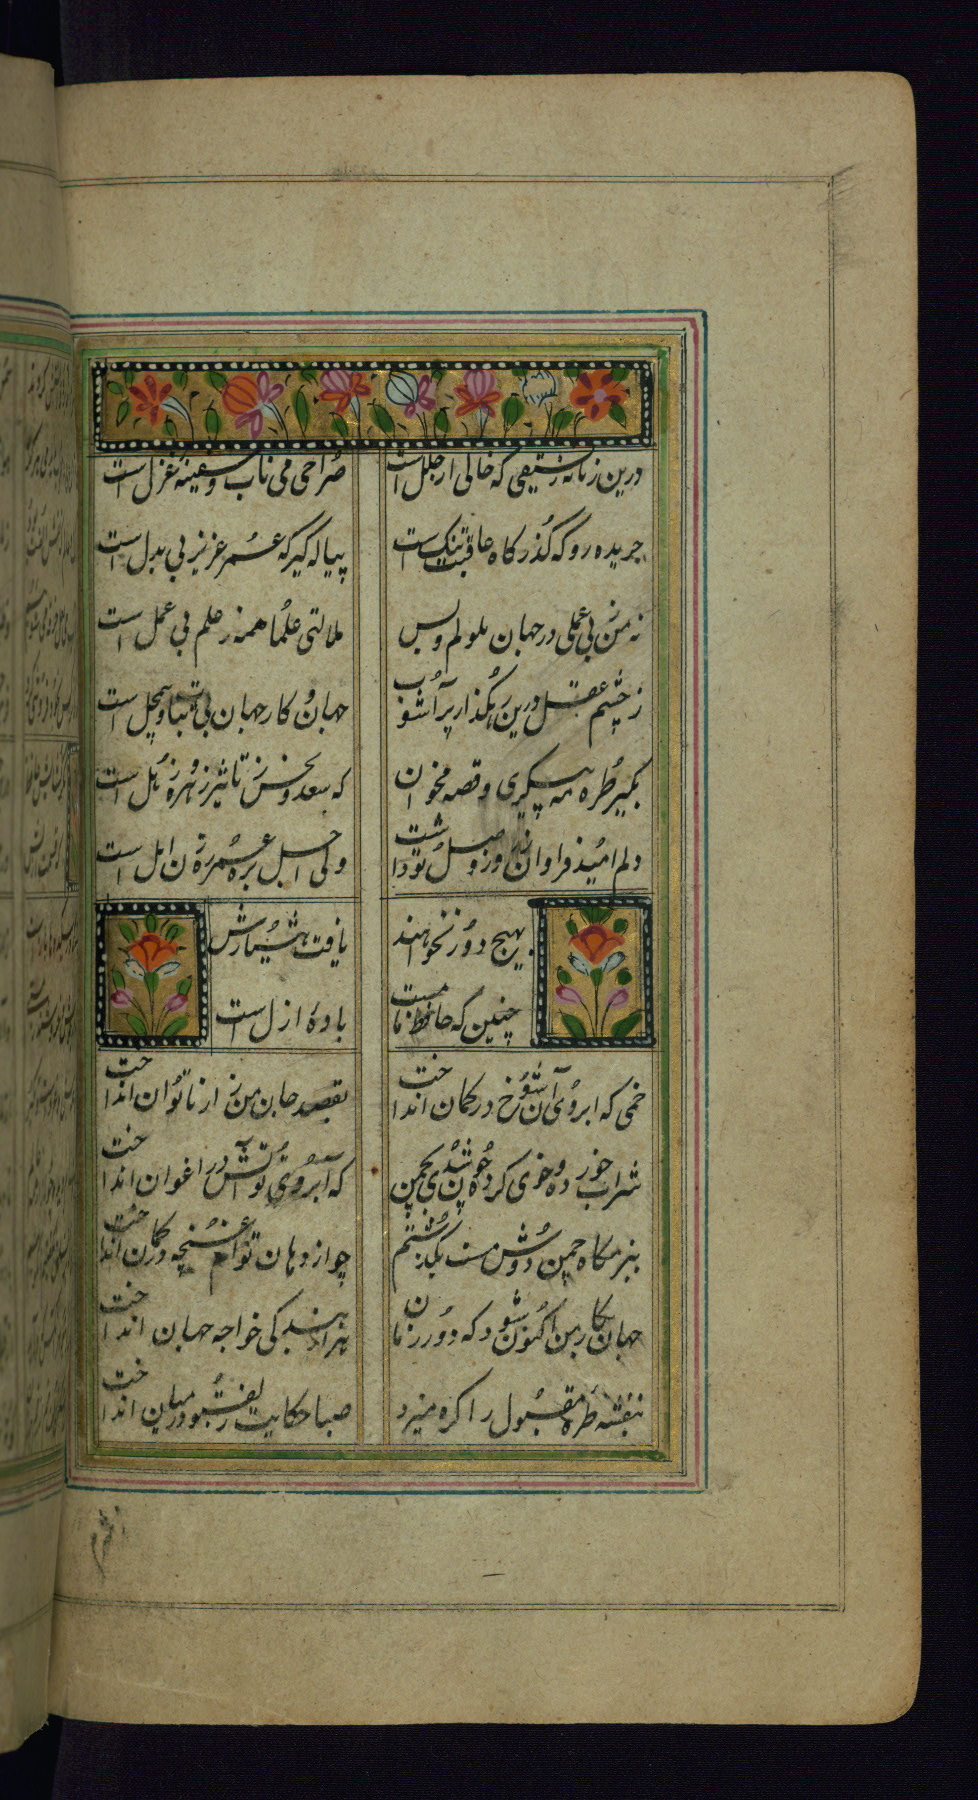 درین زمانه رفیقی که خالی از خلل است صراحی می ناب و سفینه غزل است
جریده رو که گذرگاه عافیت تنگ است پیاله گیر که عمر عزیز بی بدل است
نه من ز بی عملی در جهان ملولم و بس ملالتی علما هم ز علم بی عمل است
ز چشم عقل درین رهگذار پر آشوب جهان و کار جهان بی ثبات و بی محل است
بگیر طره مه پیکری و قصه مخوان که سعد و نحس ز تاثیر زهره و زحل است
دلم امید فراوان ز وصل تو داشت ولی اجل بره عمر رهزن امل است
بهیچ دور نخواهند یافت هشیارش
چنین که حافظ ما مست باده ازل است
خمی که ابروی آن شوخ در کمان انداخت بقصد جان من زار ناتوان انداخت
شراب خورده و خوی کرده شدی بچمن که آبروی تو آتش در ارغوان انداخت
ببزمگاه چمن دوش مست بگذشتم چو از دهان توام غنچه در گمان انداخت
جهان بکار من اکنون شود که دور زمان مرا به بندگی خواجه جهان انداخت
بنفشه طره مقبول را گره میزد صبا حکایت زلف تو در میان انداخت